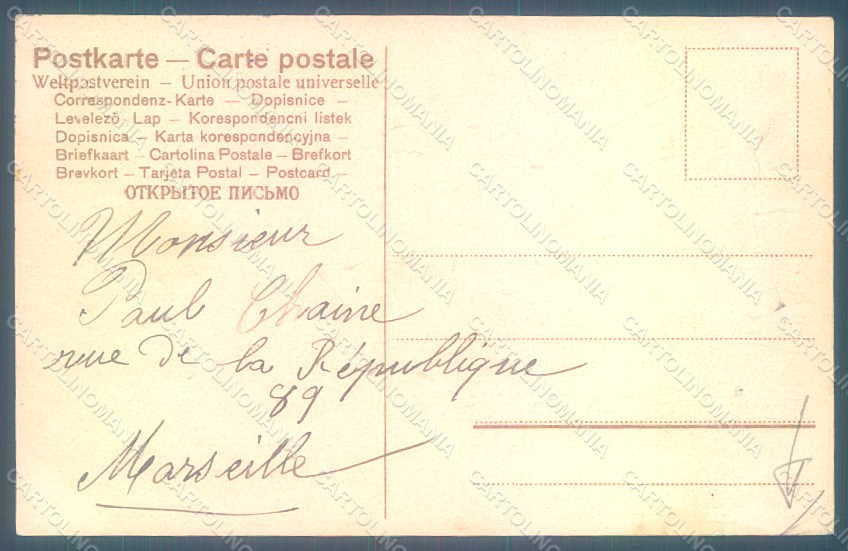 Postkarte — Carte postale
Weltpostverein — Union postale universelle
Correspondenz-Karte — Dopisnice —
Levelező Lap — Korespondencni listek
Dopisnica — Karta korespondencyjna —
Briefkaart — Cartolina Postale — Brefkort
Brevkort — Tarjeta Postal — Postcard —
ОТКРЫТОЕ ПИСЬМО
Monsieur
Paul Chaine
rue de la République
89
Marseille
CARTOLINOMANIA